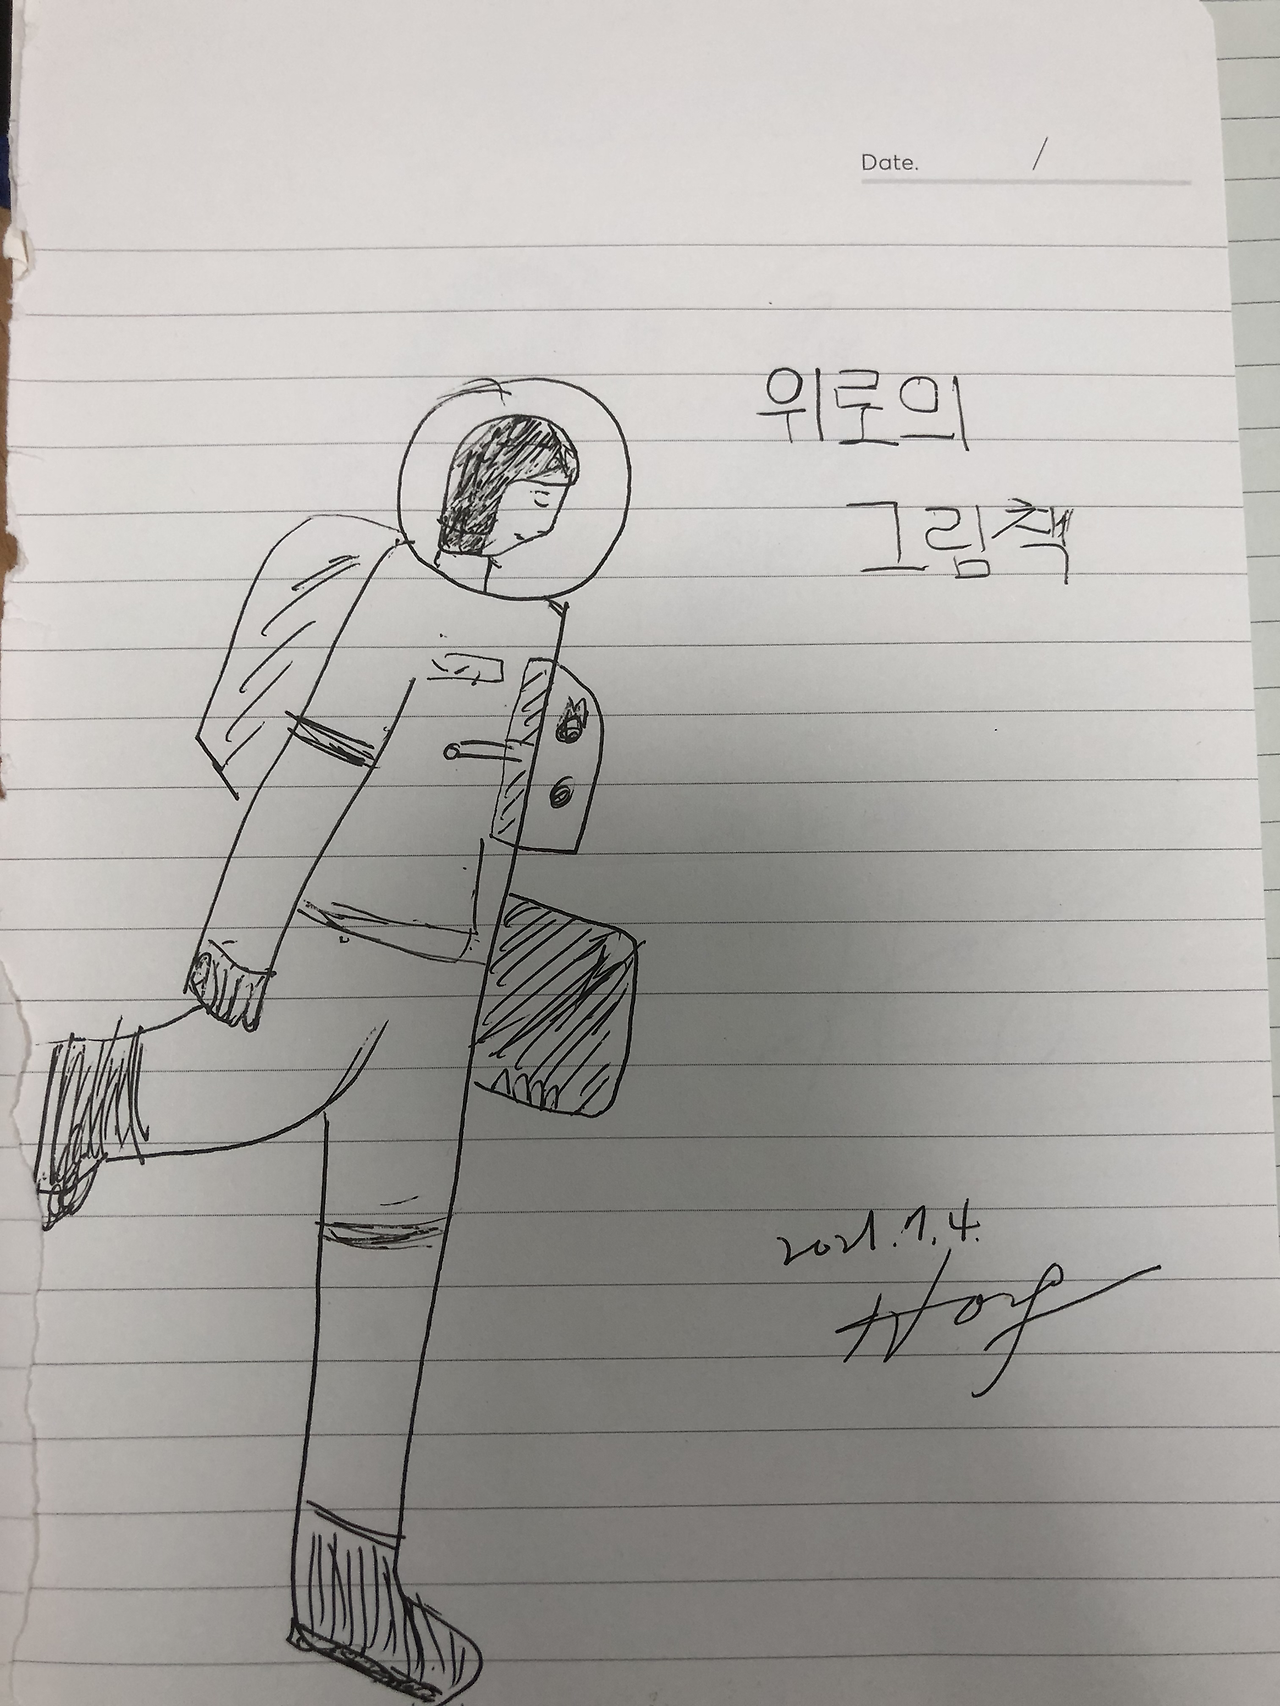 Date. /
위로의
그림책
2021.7.4.